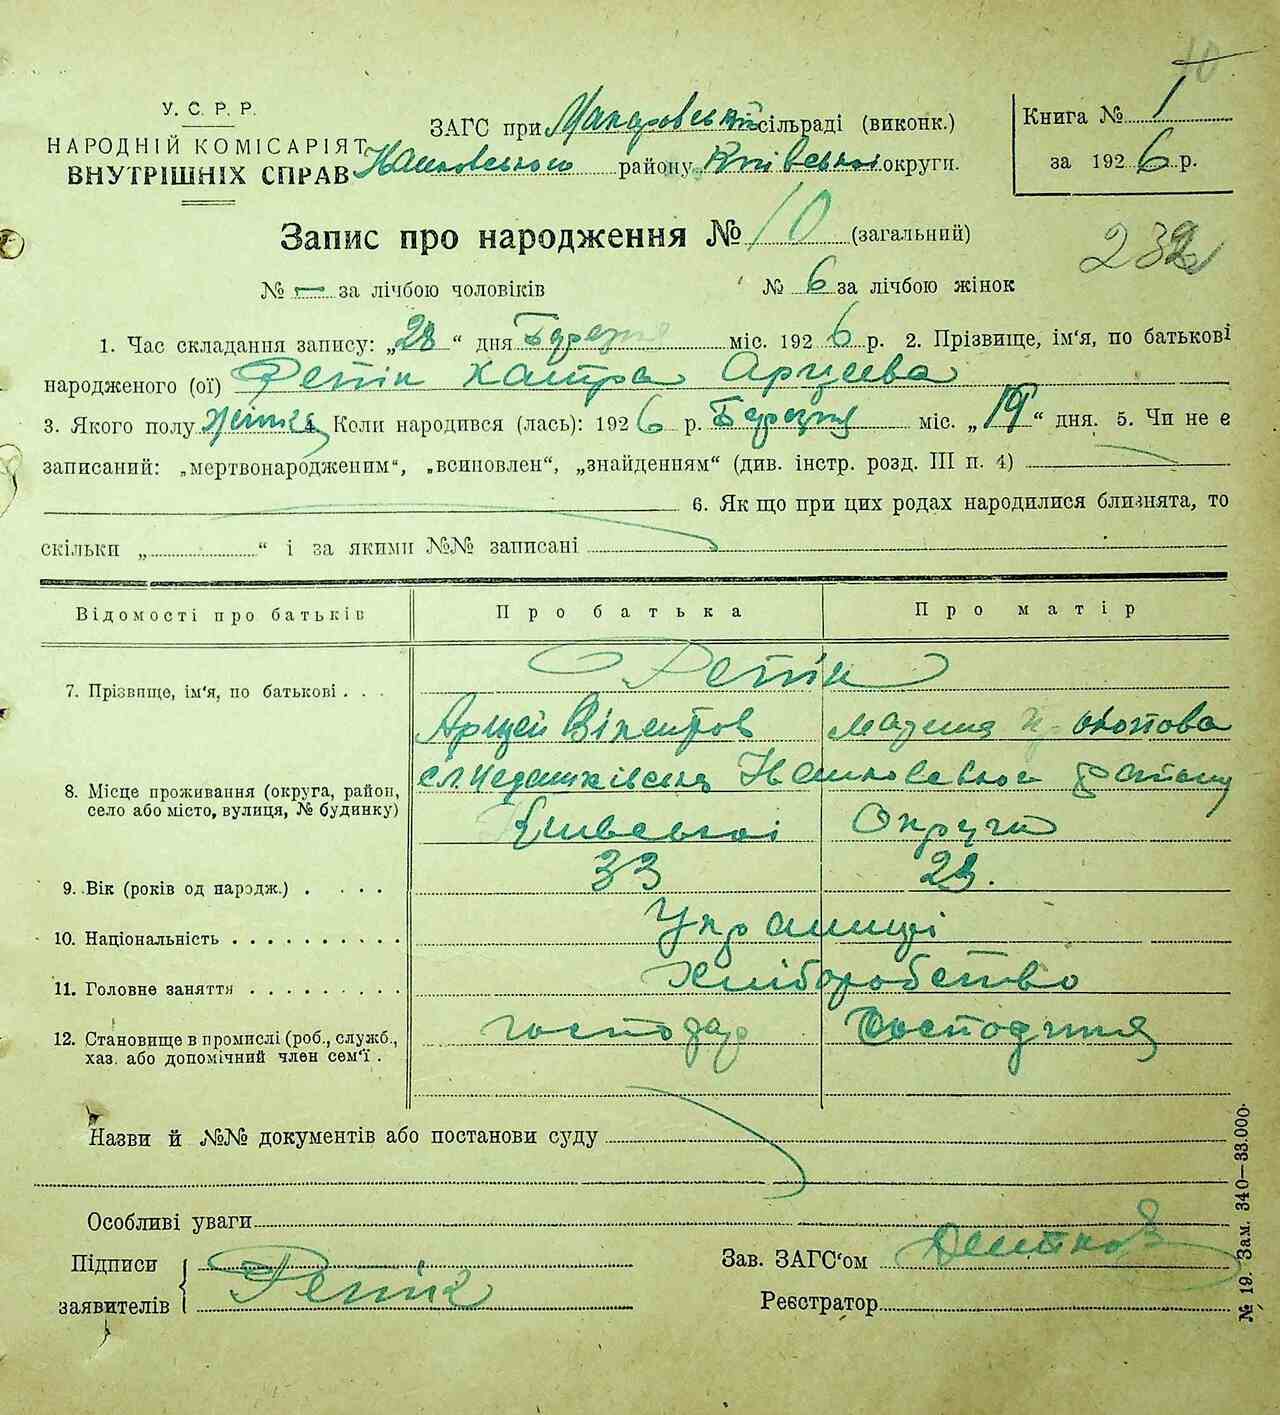 10
У. С. Р. Р.
НАРОДНІЙ КОМІСАРІЯТ
ВНУТРІШНІХ СПРАВ
ЗАГС при сільраді (виконк.)
району Київської округи.
Книга № 1
за 1926 р.
Запис про народження № 10 (загальний)
232
№ — за лічбою чоловіків № 6 за лічбою жінок
1. Час складання запису: „28“ дня Березня міс. 1926 р. 2. Прізвище, ім'я, по батькові
народженого (ої) Репік Арцева
3. Якого полу жінка 4. Коли народився (лась): 1926 р. Березня міс. „19“ дня. 5. Чи не є
записаний: „мертвонародженим“, „всиновлен“, „знайденням“ (див. інстр. розд. III п. 4)
6. Як що при цих родах народилися близнята, то
скільки „ “ і за якими №№ записані
Відомості про батьків Про батька Про матір
7. Прізвище, ім'я, по батькові . . . Репік
Арцей
8. Місце проживання (округа, район,
село або місто, вулиця, № будинку)
Київської Округи
9. Вік (років од народж.) . . . . 33 23.
10. Національність . . . . . . . . . . Українці
11. Головне заняття . . . . . . . . . Хліборобство
12. Становище в промислі (роб., служб.,
хаз. або допомічний член сем'ї .
господар Господиня
Назви й №№ документів або постанови суду
Особливі уваги
Підписи
заявителів
Репік
Зав. ЗАГС'ом
Реєстратор
№ 19. Зам. 340—33.000.